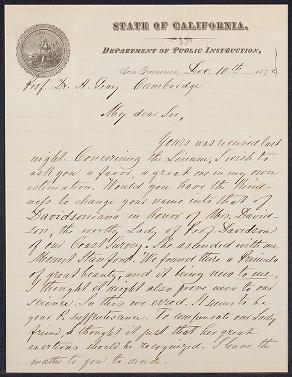 STATE OF CALIFORNIA.
DEPARTMENT OF PUBLIC INSTRUCTION,
San Francisco, Dec 10th 187
Prof. Dr. A. Gray Cambridge
My dear Sir,
Yours was received last
night. Concerning the Linum, I wish to
ask you a favor, a great one in my own
estimation. Would you have the kind-
ness to change your name into that of
Davidsoniana in honor of Mrs. David-
son, the worthy Lady of Prof. Davidson
of our Coast survey. She ascended with me
Mount Stanford. We found there a Primula
of great beauty, and it being new to me,
I thought it might also prove new to our
science. In this we erred. It seems to be
your P. suffrutescens. To compensate our Lady
friend, I thought it just that her great
exertions should be recognized. I leave the
matter to you to decide.